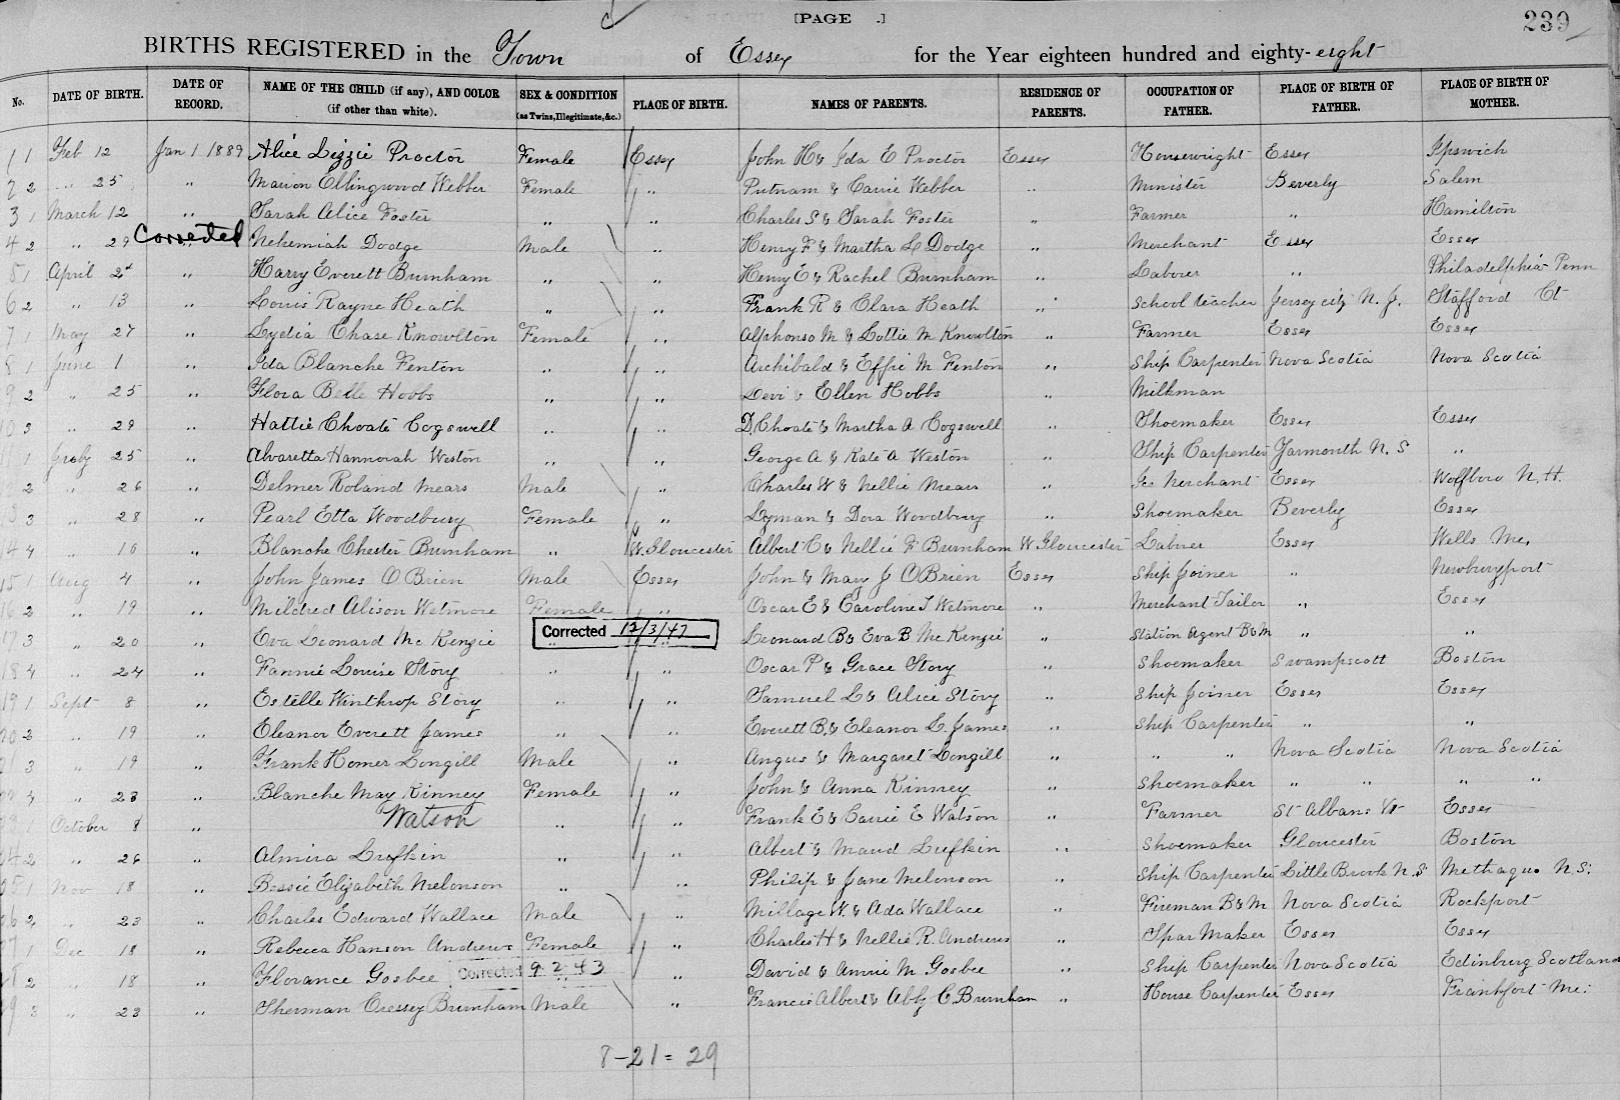 [PAGE .] 239
BIRTHS REGISTERED in the Town of Essex for the Year eighteen hundred and eighty-eight
No. DATE OF BIRTH. DATE OF RECORD. NAME OF THE CHILD (if any), AND COLOR (if other than white). SEX & CONDITION (as Twins, Illegitimate, &c.) PLACE OF BIRTH. NAMES OF PARENTS. RESIDENCE OF PARENTS. OCCUPATION OF FATHER. PLACE OF BIRTH OF FATHER. PLACE OF BIRTH OF MOTHER.
1 1 Feb 12 Jan 1 1889 Alice Lizzie Proctor Female Essex John H & Ida E Proctor Essex Housewright Essex Ipswich
2 2 " 25 " Marion Ellingwood Webber Female " Putnam & Carrie Webber " Minister Beverly Salem
3 1 March 12 " Sarah Alice Foster " " Charles S & Sarah Foster " Farmer " Hamilton
4 2 " 29 Corrected " Nehemiah Dodge Male " Henry F & Martha L Dodge " Merchant Essex Essex
5 1 April 2d " Harry Everett Burnham " " Henry E & Rachel Burnham " Laborer " Philadelphia Penn
6 2 " 13 " Louis Rayne Heath " " Frank R & Clara Heath " School teacher Jersey city N. J. Stafford Ct
7 1 May 27 " Lydia Chase Knowlton Female " Alphonso M & Lottie M Knowlton " Farmer Essex Essex
8 1 June 1 " Ida Blanche Fenton " " Archibald & Effie M Fenton " Ship Carpenter Nova Scotia Nova Scotia
9 2 " 25 " Flora Belle Hobbs " " Levi & Ellen Hobbs " Milkman
10 3 " 29 " Hattie Choate Cogswell " " D. Choate & Martha A Cogswell " Shoemaker Essex Essex
11 1 July 25 " Alvaretta Hannorah Weston " " George A & Kate A Weston " Ship Carpenter Yarmouth N. S "
12 2 " 26 " Delmer Roland Mears Male " Charles W & Nellie Mears " Ice Merchant Essex Wolfboro N. H.
13 3 " 28 " Pearl Etta Woodbury Female " Lyman & Dora Woodbury " Shoemaker Beverly Essex
14 4 " 16 " Blanche Chester Burnham " W. Gloucester Albert C & Nellie F Burnham W Gloucester Laborer Essex Wells Me,
15 1 Aug 4 " John James O Brien Male Essex John & Mary J O Brien Essex Ship Joiner " Newburyport
16 2 " 19 " Mildred Alison Wetmore Female " Oscar E & Caroline T Wetmore " Merchant Tailor " Essex
17 3 " 20 " Eva Leonard Mc Kenzie " Corrected 12/3/47 " Leonard B & Eva B Mc Kenzie " Station Agent B & M " "
18 4 " 24 " Fannie Louise Story " " Oscar P & Grace Story " Shoemaker Swampscott Boston
19 1 Sept 8 " Estelle Winthrop Story " " Samuel L & Alice Story " Ship Joiner Essex Essex
20 2 " 19 " Eleanor Everett James " " Everett B. & Eleanor L. James " Ship Carpenter " "
21 3 " 19 " Frank Homer Longill Male " Angus & Margaret Longill " " " Nova Scotia Nova Scotia
22 4 " 23 " Blanche May Kinney Female " John & Anna Kinney " Shoemaker " " " "
23 1 October 8 " Watson " " Frank E & Carrie E Watson " Farmer St Albans Vt Essex
24 2 " 26 " Almira Lufkin " " Albert & Maud Lufkin " Shoemaker Gloucester Boston
25 1 Nov 18 " Bessie Elizabeth Melonson " " Philip & Jane Melonson " Ship Carpenter Little Brook N. S Methaque N. S.
26 2 " 23 " Charles Edward Wallace Male " Millage W. & Ada Wallace " Fireman B & M Nova Scotia Rockport
27 1 Dec 18 " Rebecca Hanson Andrews Female " Charles H & Nellie R. Andrews " Spar Maker Essex Essex
28 2 " 18 " Florance Gosbee Corrected 9 2 43 " " David & Annie M. Gosbee " Ship Carpenter Nova Scotia Edinburg Scotland
29 3 " 23 " Sherman Cressey Burnham Male " Francis Albert & Abby C. Burnham " House Carpenter Essex Frankfort Me.
8-21=29